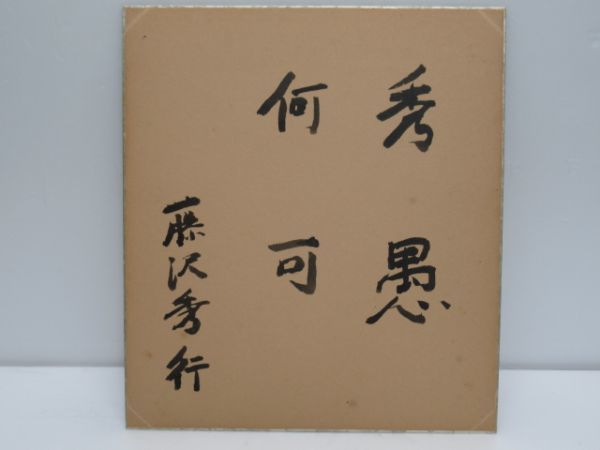 秀愚
何可
藤沢秀行